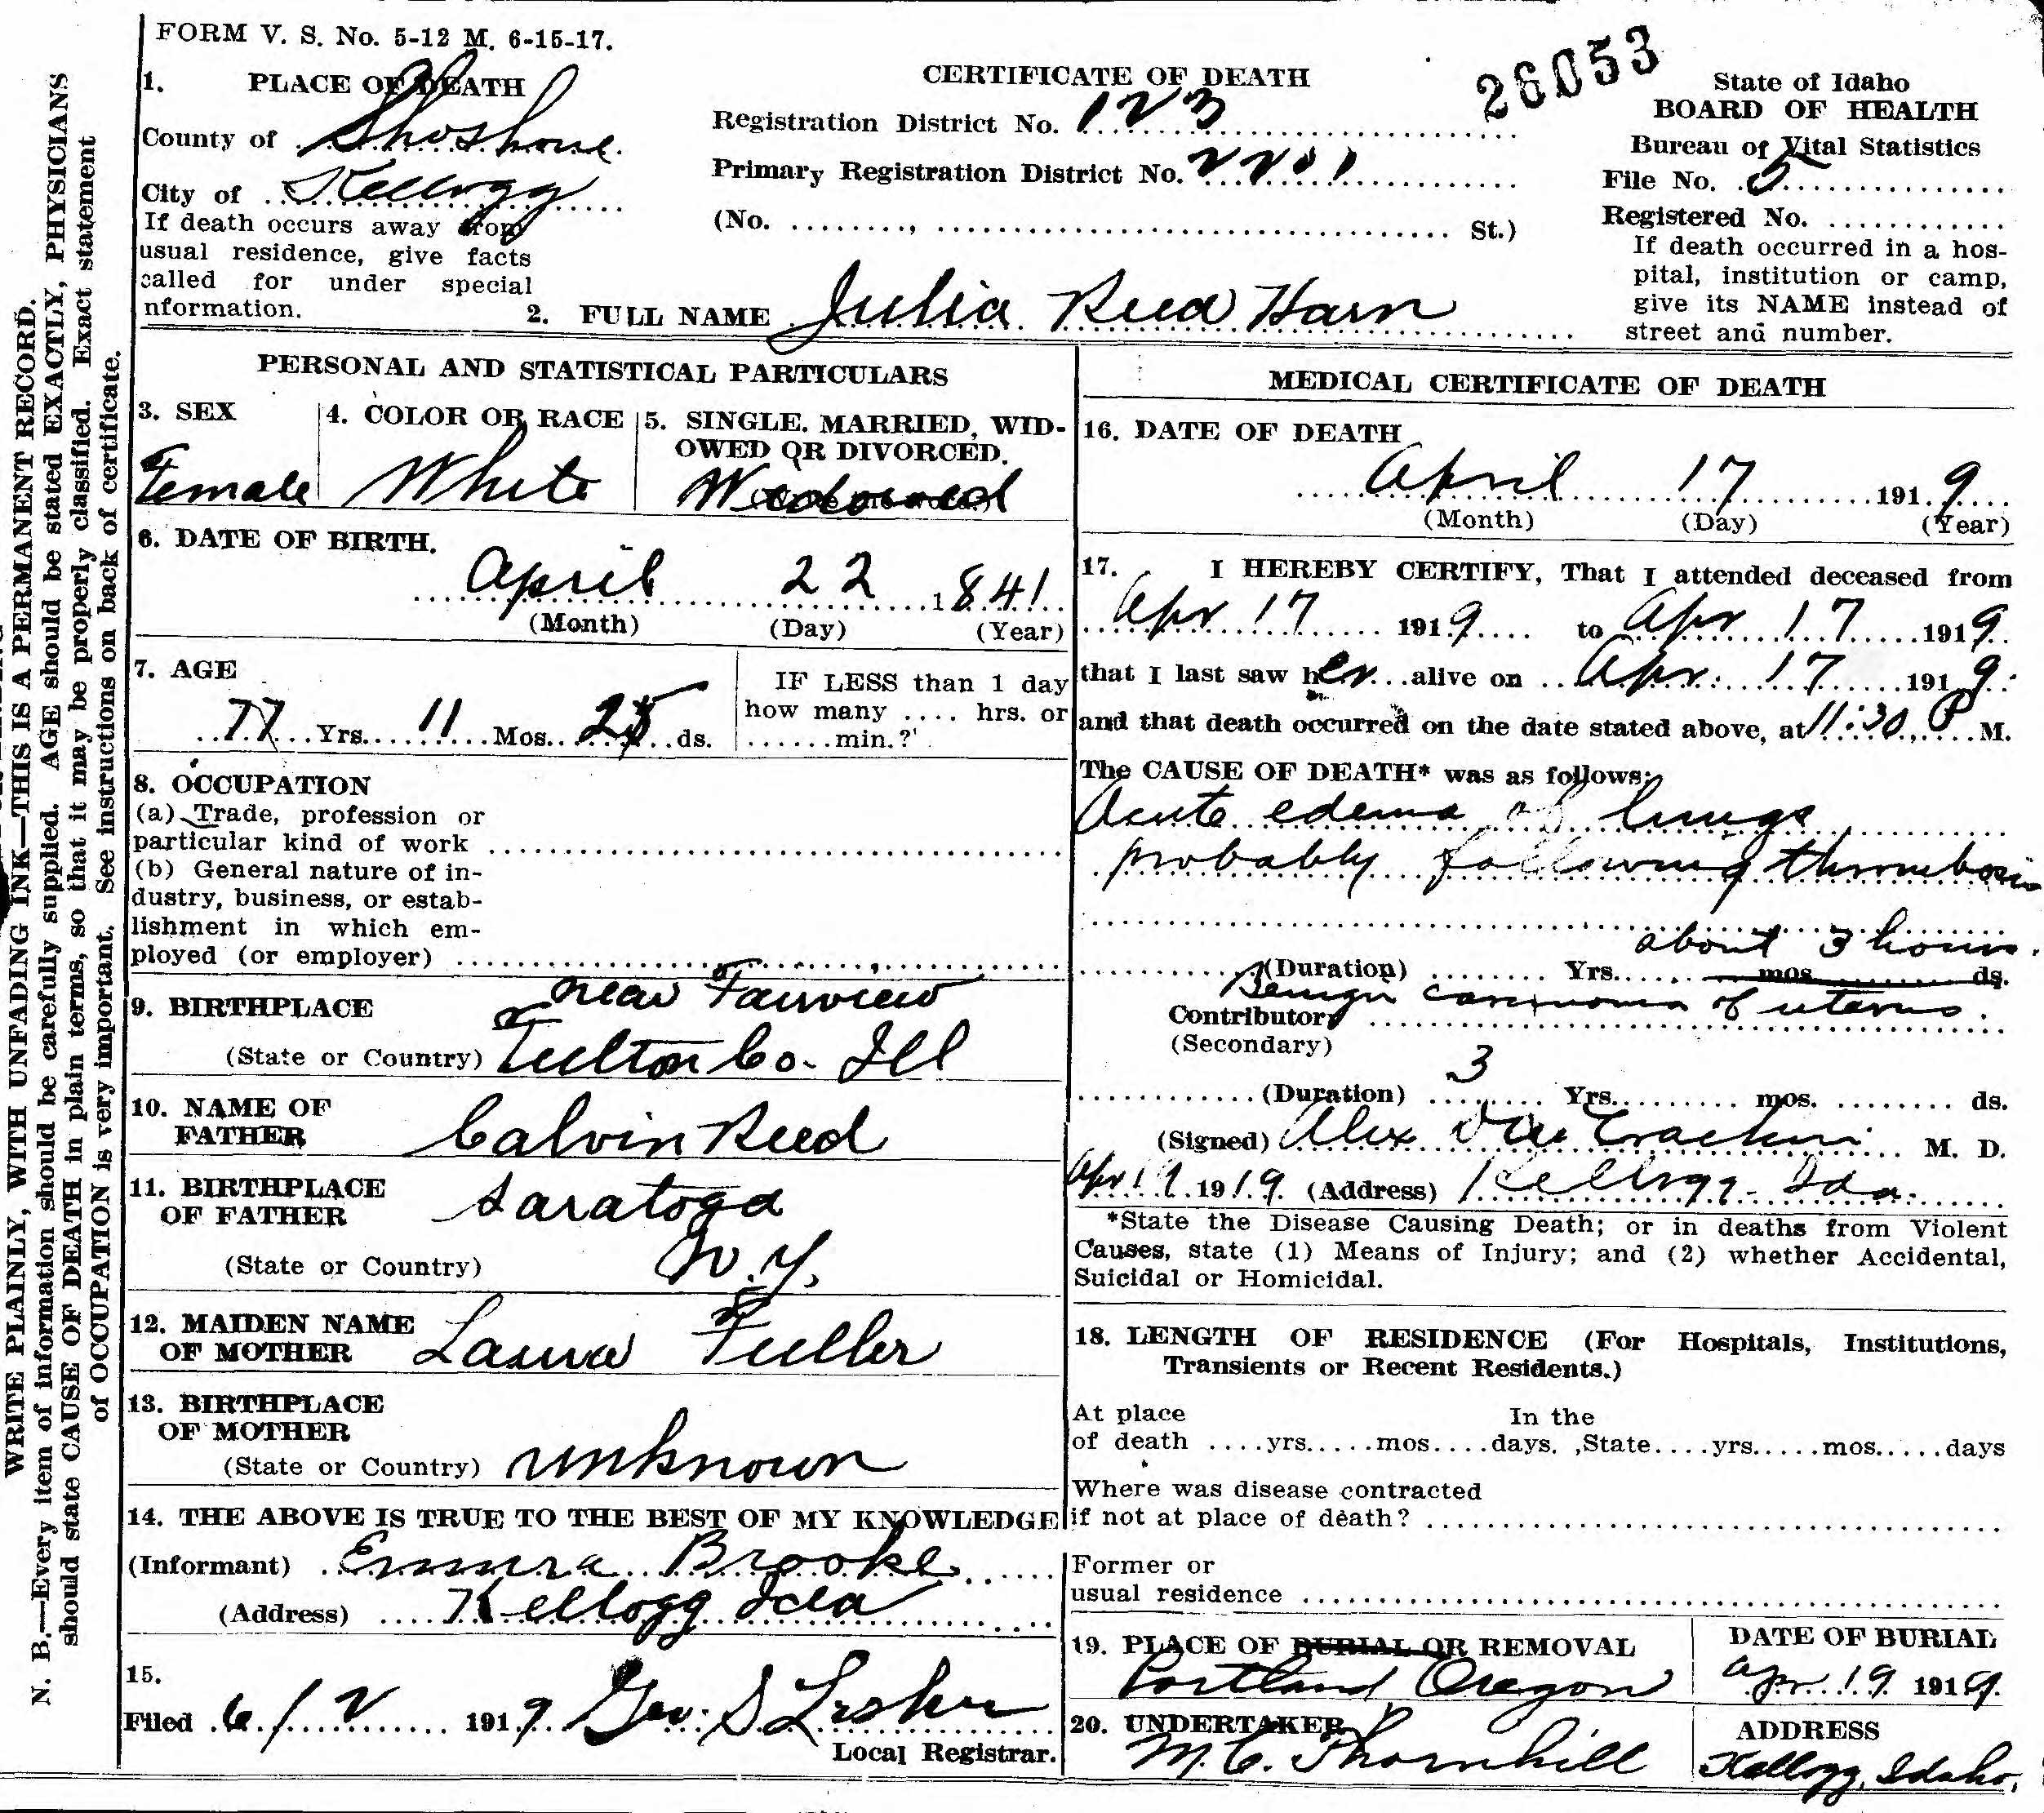 FORM V. S. No. 5-12 M. 6-15-17.
26053
1. PLACE OF DEATH
County of Shoshone
City of Kellogg
If death occurs away from
usual residence, give facts
called for under special
nformation.
CERTIFICATE OF DEATH
Registration District No. 123
Primary Registration District No. 2201
(No. ........., ........ St.)
State of Idaho
BOARD OF HEALTH
Bureau of Vital Statistics
File No. 5
Registered No. ............
If death occurred in a hos-
pital, institution or camp,
give its NAME instead of
street and number.
2. FULL NAME Julia Reed Harn
PERSONAL AND STATISTICAL PARTICULARS
3. SEX
Female
4. COLOR OR RACE
White
5. SINGLE. MARRIED, WID-
OWED OR DIVORCED.
Widowed
6. DATE OF BIRTH.
April 22 1841
(Month) (Day) (Year)
7. AGE
77 Yrs. 11 Mos. 25 ds.
IF LESS than 1 day
how many .... hrs. or
...... min.?
8. OCCUPATION
(a) Trade, profession or
particular kind of work
(b) General nature of in-
dustry, business, or estab-
lishment in which em-
ployed (or employer)
9. BIRTHPLACE near Fairview
(State or Country) Fulton Co. Ill
10. NAME OF
FATHER Calvin Reed
11. BIRTHPLACE
OF FATHER Saratoga
(State or Country) N.Y.
12. MAIDEN NAME
OF MOTHER Laura Fuller
13. BIRTHPLACE
OF MOTHER
(State or Country) unknown
14. THE ABOVE IS TRUE TO THE BEST OF MY KNOWLEDGE
(Informant) Emma Brooke
(Address) Kellogg Ida
15.
Filed 6/2 1919 Geo. S
Local Registrar.
MEDICAL CERTIFICATE OF DEATH
16. DATE OF DEATH
April 17 1919
(Month) (Day) (Year)
17. I HEREBY CERTIFY, That I attended deceased from
Apr 17 1919 to Apr 17 1919
that I last saw her alive on Apr. 17 1919
and that death occurred on the date stated above, at 11:30 P M.
The CAUSE OF DEATH* was as follows:
Acute edema of lungs
probably following thrombosis
about 3 hours.
(Duration) ........ Yrs. ...... mos. ........ ds.
Benign carcinoma of uterus
Contributory
(Secondary)
(Duration) 3 Yrs. ........ mos. ........ ds.
(Signed) Alex M. D.
Apr 19 1919 (Address) Kellogg Ida.
*State the Disease Causing Death; or in deaths from Violent
Causes, state (1) Means of Injury; and (2) whether Accidental,
Suicidal or Homicidal.
18. LENGTH OF RESIDENCE (For Hospitals, Institutions,
Transients or Recent Residents.)
At place In the
of death ....yrs.....mos....days. ,State....yrs.....mos.....days
Where was disease contracted
if not at place of death?
Former or
usual residence
19. PLACE OF BURIAL OR REMOVAL
Portland Oregon
DATE OF BURIAL
Apr. 19 1919.
20. UNDERTAKER
M. C. Thornhill
ADDRESS
Kellogg, Idaho.
WRITE PLAINLY, WITH UNFADING INK—THIS IS A PERMANENT RECORD.
N. B.—Every item of information should be carefully supplied. AGE should be stated EXACTLY, PHYSICIANS
should state CAUSE OF DEATH in plain terms, so that it may be properly classified. Exact statement
of OCCUPATION is very important. See instructions on back of certificate.